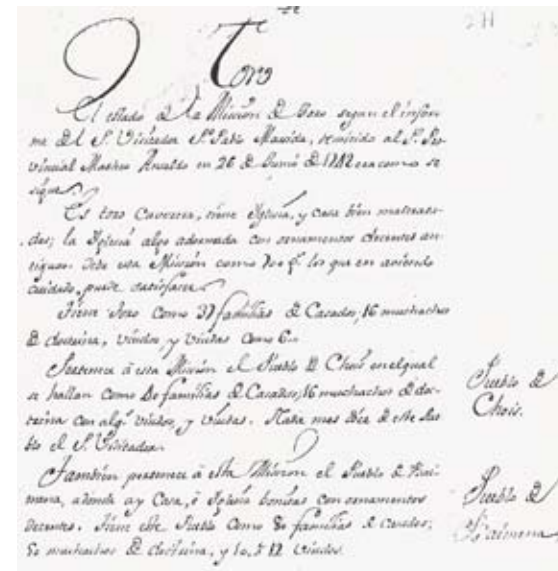 271
Toro
El estado de la Mission de Toro segun el infor-
me del P. Visitador P. Pablo Maxida, remitido al P. Pro-
vincial Matheo Ansaldo en 26 de Junio de era como se
sigue.
Es toro Cavecera, tiene Iglesia, y casa bien maltrata-
das; la Iglesia algo adornada con ornamentos decentes an-
tiguos. Debe esta Mission como 700 p.s los que en aviendo
cuidado, puede satisfacer.
Tiene Toro como 37 familias de Casados, 16 muchachos
de doctrina, viudos y viudas como 6.
Pertenece à esta Mission el Pueblo de Chois en el qual
se hallan como familias de Casados, 16 muchachos de doc-
trina con alg.s viudos, y viudas. Nada mas dice de este Pue-
blo el P. Visitador.
Pueblo de
Chois.
Tambien pertenece à esta Mission el Pueblo de Bai-
mena, adonde ay Casa, è Iglesia bonitas con ornamentos
decentes. Tiene este Pueblo como 80 familias de casados;
50 muchachos de doctrina, y 10, ò 12 viudos.
Pueblo de
Baimena